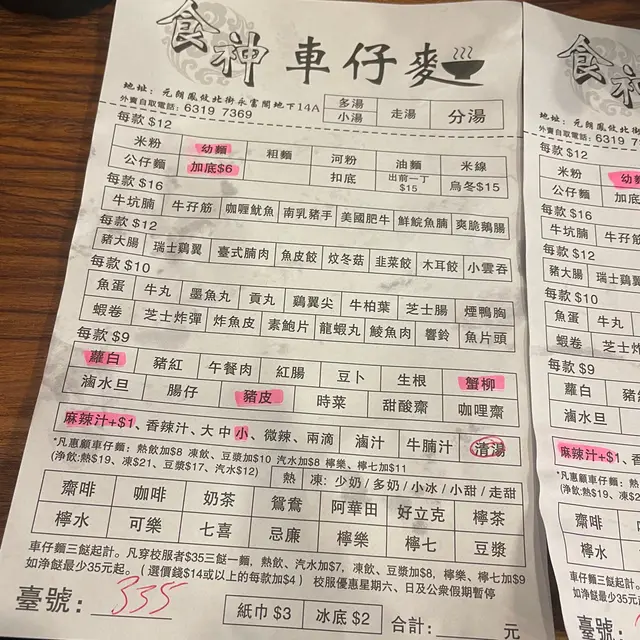 食神 車仔麵
地址: 元朗鳳攸北街永富閣地下14A
外賣自取電話: 6319 7369
多湯 走湯 分湯
小湯
每款 $12
米粉 幼麵 粗麵 河粉 油麵 米線
公仔麵 加底$6 扣底 出前一丁$15 烏冬$15
每款 $16
牛坑腩 牛孖筋 咖喱魷魚 南乳豬手 美國肥牛 鮮鯇魚腩 爽脆鵝腸
每款 $12
豬大腸 瑞士鷄翼 臺式腩肉 魚皮餃 炆冬菇 韭菜餃 木耳餃 小雲吞
每款 $10
魚蛋 牛丸 墨魚丸 貢丸 鷄翼尖 牛柏葉 芝士腸 煙鴨胸
蝦卷 芝士炸彈 炸魚皮 素鮑片 龍蝦丸 鯪魚肉 響鈴 魚片頭
每款 $9
蘿白 豬紅 午餐肉 紅腸 豆卜 生根 蟹柳
滷水旦 腸仔 豬皮 時菜 甜酸齋 咖哩齋
麻辣汁+$1、香辣汁、大中小、微辣、兩滴 滷汁 牛腩汁 清湯
*凡惠顧車仔麵: 熱飲加$8 凍飲、豆漿加$10 汽水加$8 檸樂、檸七加$11
(淨飲:熱$19、凍$21、豆漿$17、汽水$12)
熱 凍: 少奶/多奶/小冰/小甜/走甜
齋啡 咖啡 奶茶 鴛鴦 阿華田 好立克 檸茶
檸水 可樂 七喜 忌廉 檸樂 檸七 豆漿
車仔麵三餸起計。凡穿校服者$35三餸一麵, 熱飲、汽水加$7, 凍飲、豆漿加$8, 檸樂、檸七加$9
如淨餸最少35元起。(選價錢$14或以上的每款加$4) 校服優惠星期六、日及公衆假期暫停
臺號: 335
紙巾 $3 冰底 $2 合計: 元
食神
地址: 元朗鳳攸北街永富
外賣自取電話: 6319 7
每款 $12
米粉 幼
公仔麵 加底
每款 $16
牛坑腩 牛孖筋
每款 $12
豬大腸 瑞士鷄
每款 $10
魚蛋 牛丸
蝦卷 芝士炸
每款 $9
蘿白 豬紅
滷水旦 腸
麻辣汁+$1、香
*凡惠顧車仔麵: 熱
(淨飲:熱$19、凍$2
齋啡 咖
檸水
車仔麵三餸起計。
如淨餸最少35元
臺號: